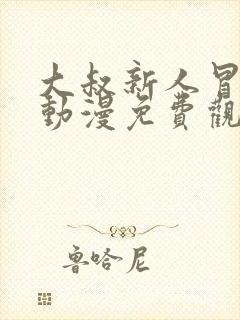 大叔新人冒
動漫免費觀
魯哈尼